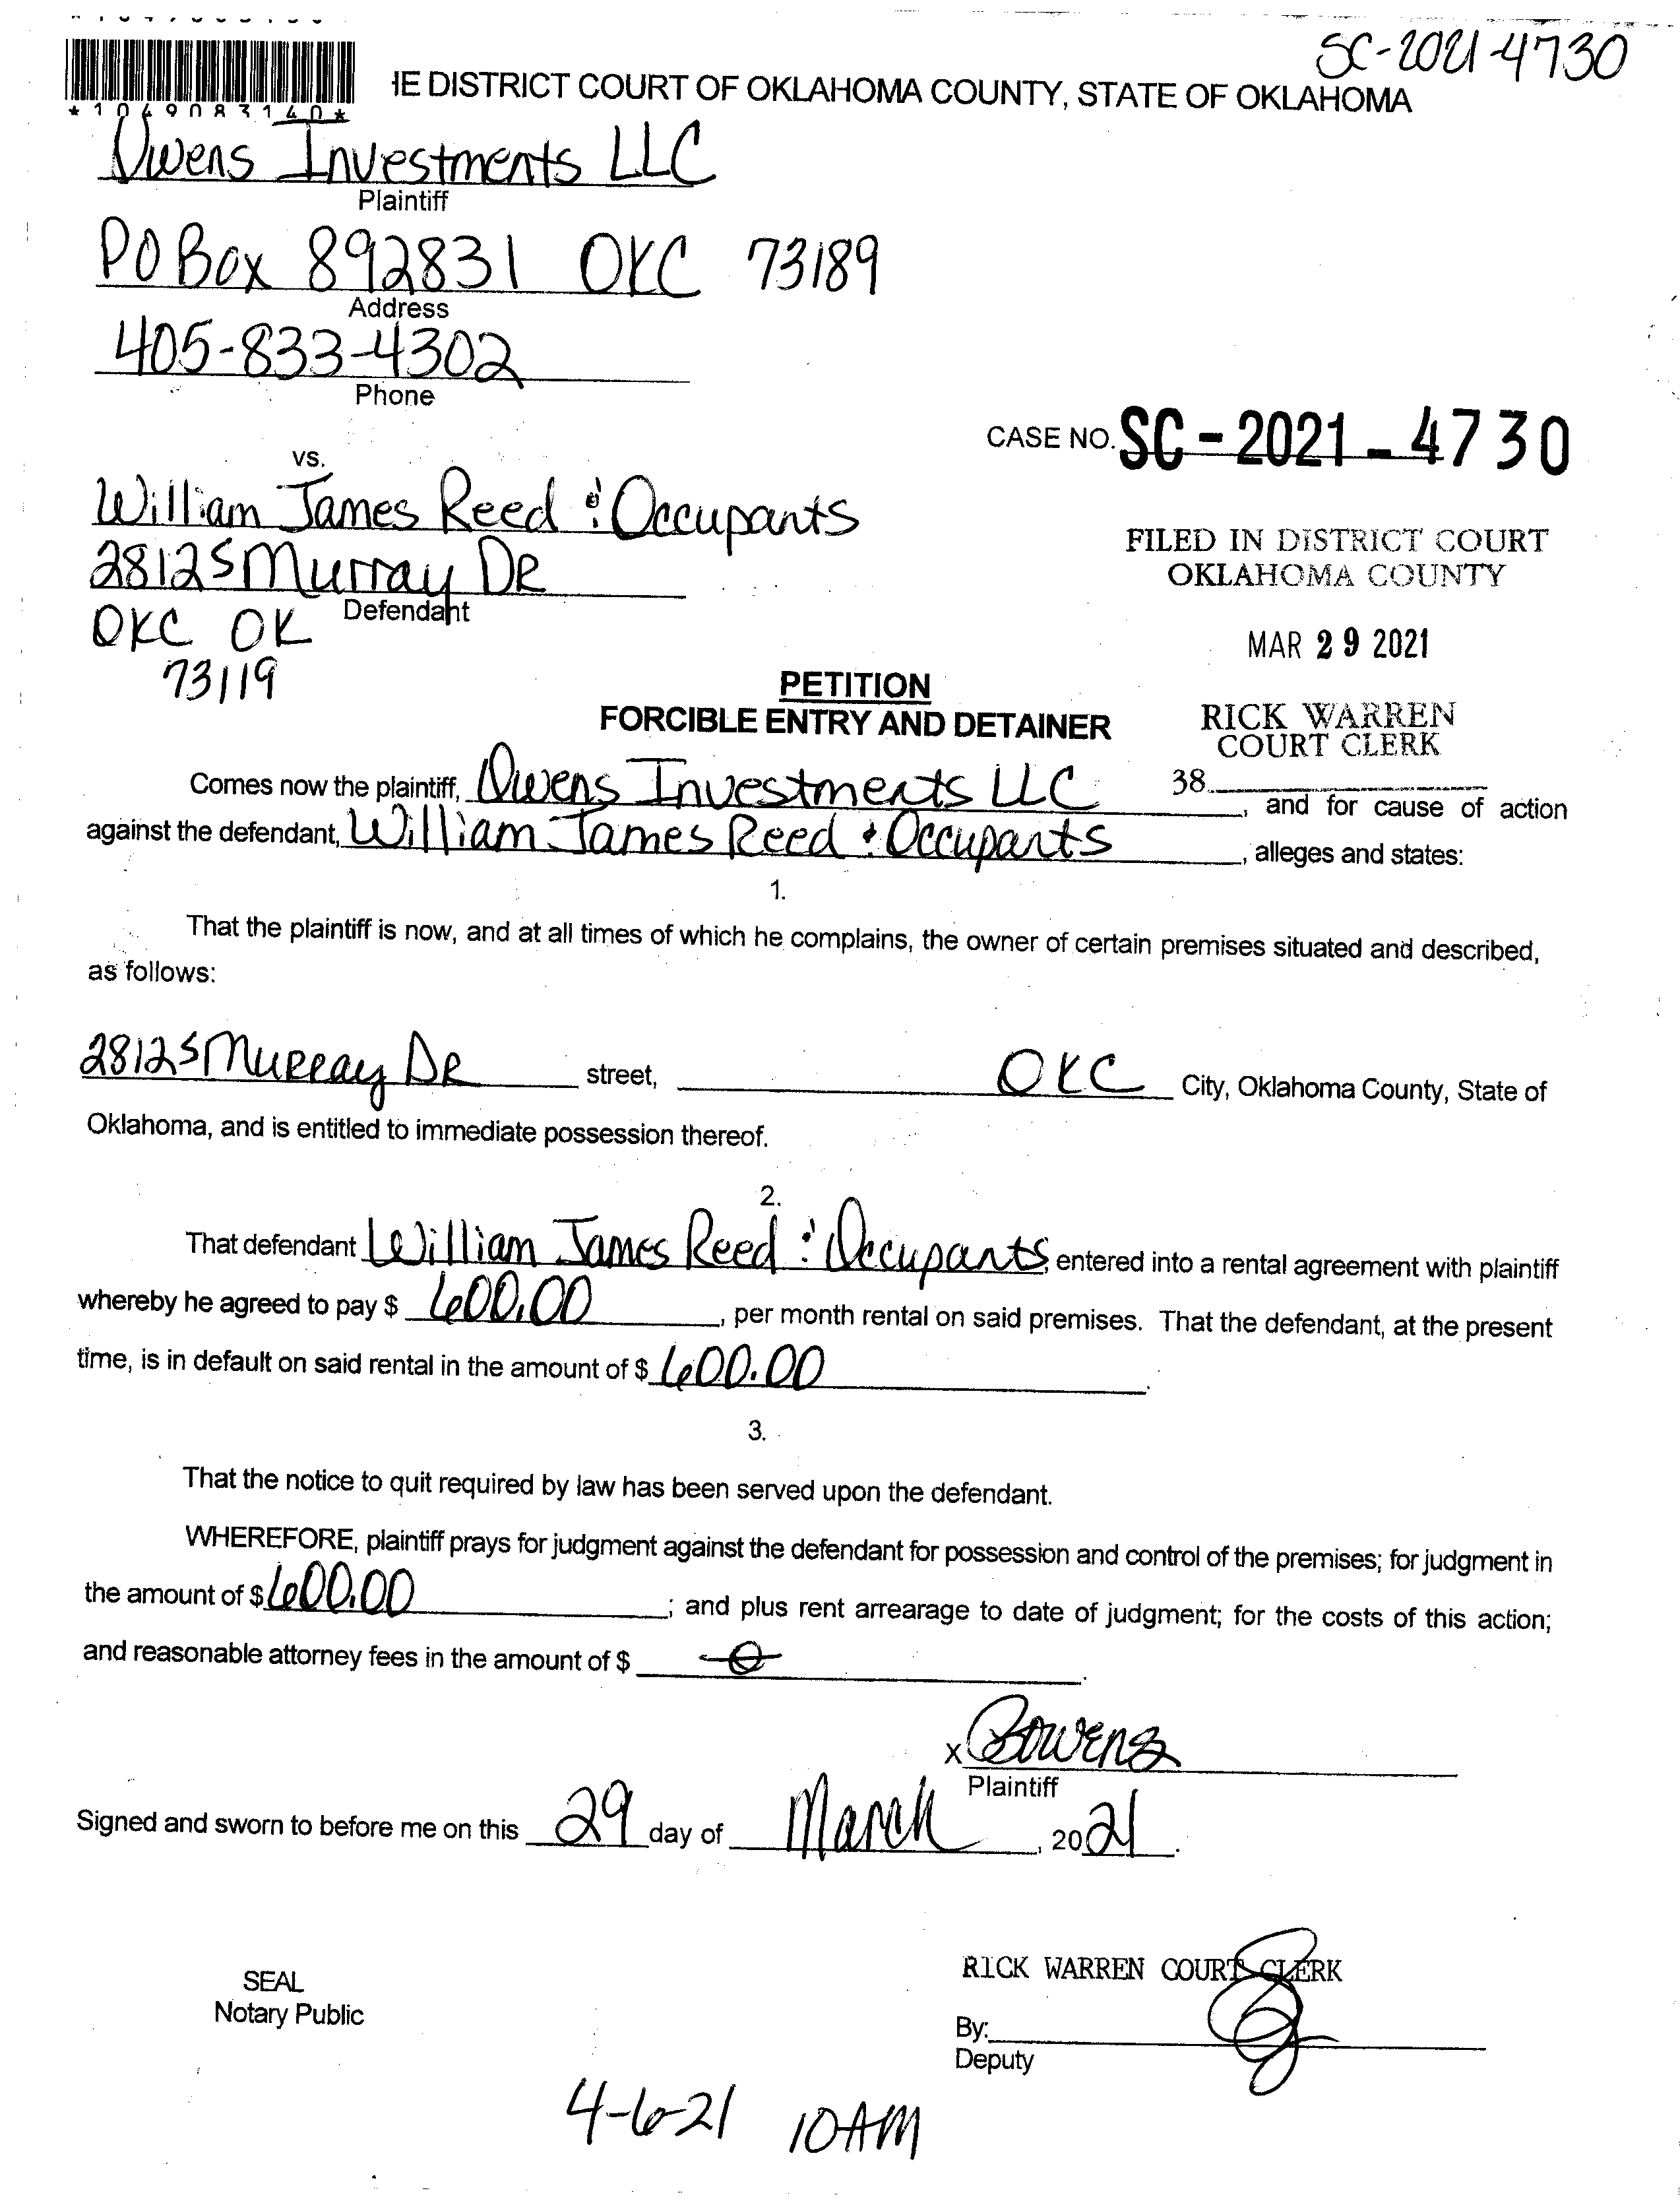 SC-2021-4730
*1049083140*
HE DISTRICT COURT OF OKLAHOMA COUNTY, STATE OF OKLAHOMA
Owens Investments LLC
Plaintiff
PO Box 892831 OKC 73189
Address
405-833-4302
Phone
CASE NO. SC-2021-4730
vs.
William James Reed & Occupants
2812 S Murray DR
Defendant
OKC OK
73119
FILED IN DISTRICT COURT
OKLAHOMA COUNTY
MAR 29 2021
RICK WARREN
COURT CLERK
38
PETITION
FORCIBLE ENTRY AND DETAINER
Comes now the plaintiff, Owens Investments LLC, and for cause of action
against the defendant, William James Reed & Occupants, alleges and states:
1.
That the plaintiff is now, and at all times of which he complains, the owner of certain premises situated and described,
as follows:
2812 S Murray DR street, OKC City, Oklahoma County, State of
Oklahoma, and is entitled to immediate possession thereof.
2.
That defendant William James Reed & Occupants, entered into a rental agreement with plaintiff
whereby he agreed to pay $ 600.00, per month rental on said premises. That the defendant, at the present
time, is in default on said rental in the amount of $ 600.00.
3.
That the notice to quit required by law has been served upon the defendant.
WHEREFORE, plaintiff prays for judgment against the defendant for possession and control of the premises; for judgment in
the amount of $ 600.00; and plus rent arrearage to date of judgment; for the costs of this action;
and reasonable attorney fees in the amount of $ 0.
x BOwens
Plaintiff
Signed and sworn to before me on this 29 day of March, 2021.
SEAL
Notary Public
RICK WARREN COURT CLERK
By:
Deputy
4-6-21 10AM